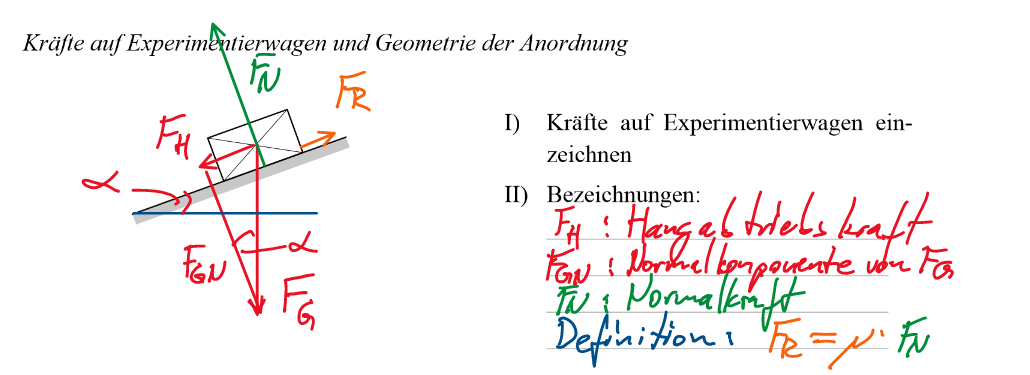 Kräfte auf Experimentierwagen und Geometrie der Anordnung
F_N
F_R
F_H
α
F_GN
α
F_G
I) Kräfte auf Experimentierwagen ein-
zeichnen
II) Bezeichnungen:
F_H : Hangabtriebskraft
F_GN : Normalkomponente von F_G
F_N : Normalkraft
Definition: F_R = μ · F_N